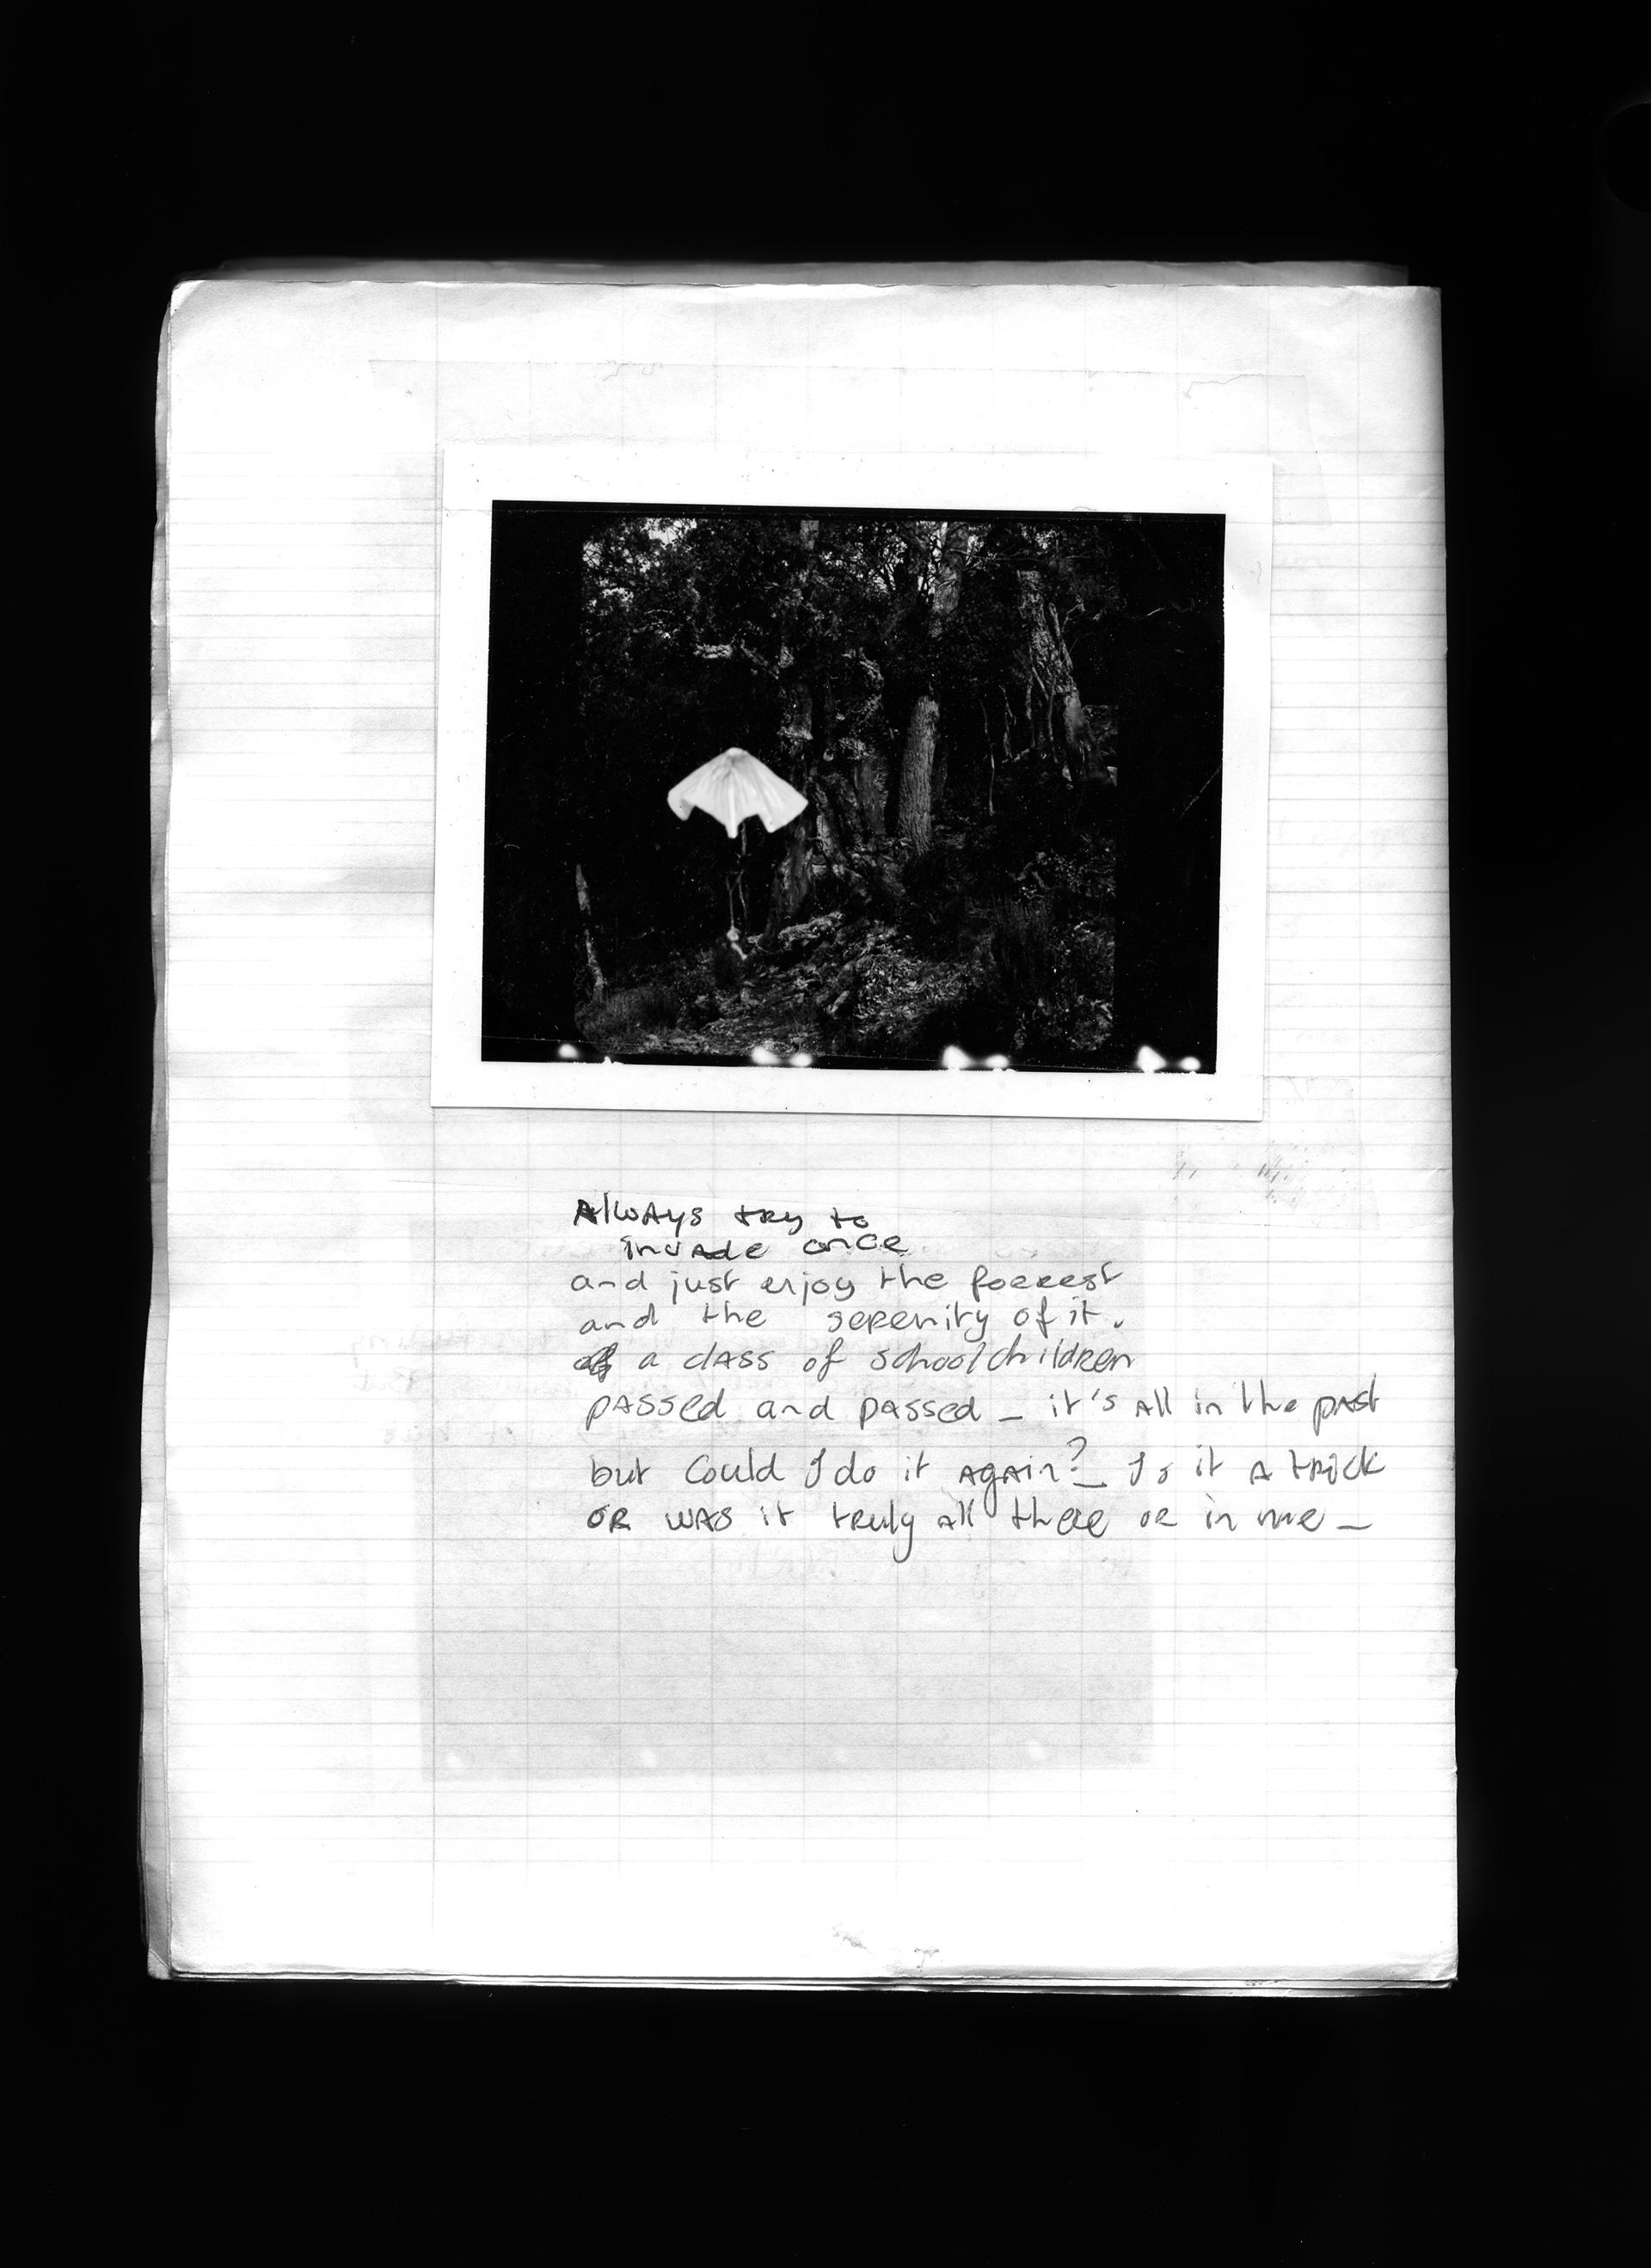 Always try to
invade once
and just enjoy the forrest
and the serenity of it.
a class of schoolchildren
passed and passed _ it's all in the past
but Could I do it again? _ Is it a trick
OR WAS it truly all there or in me _